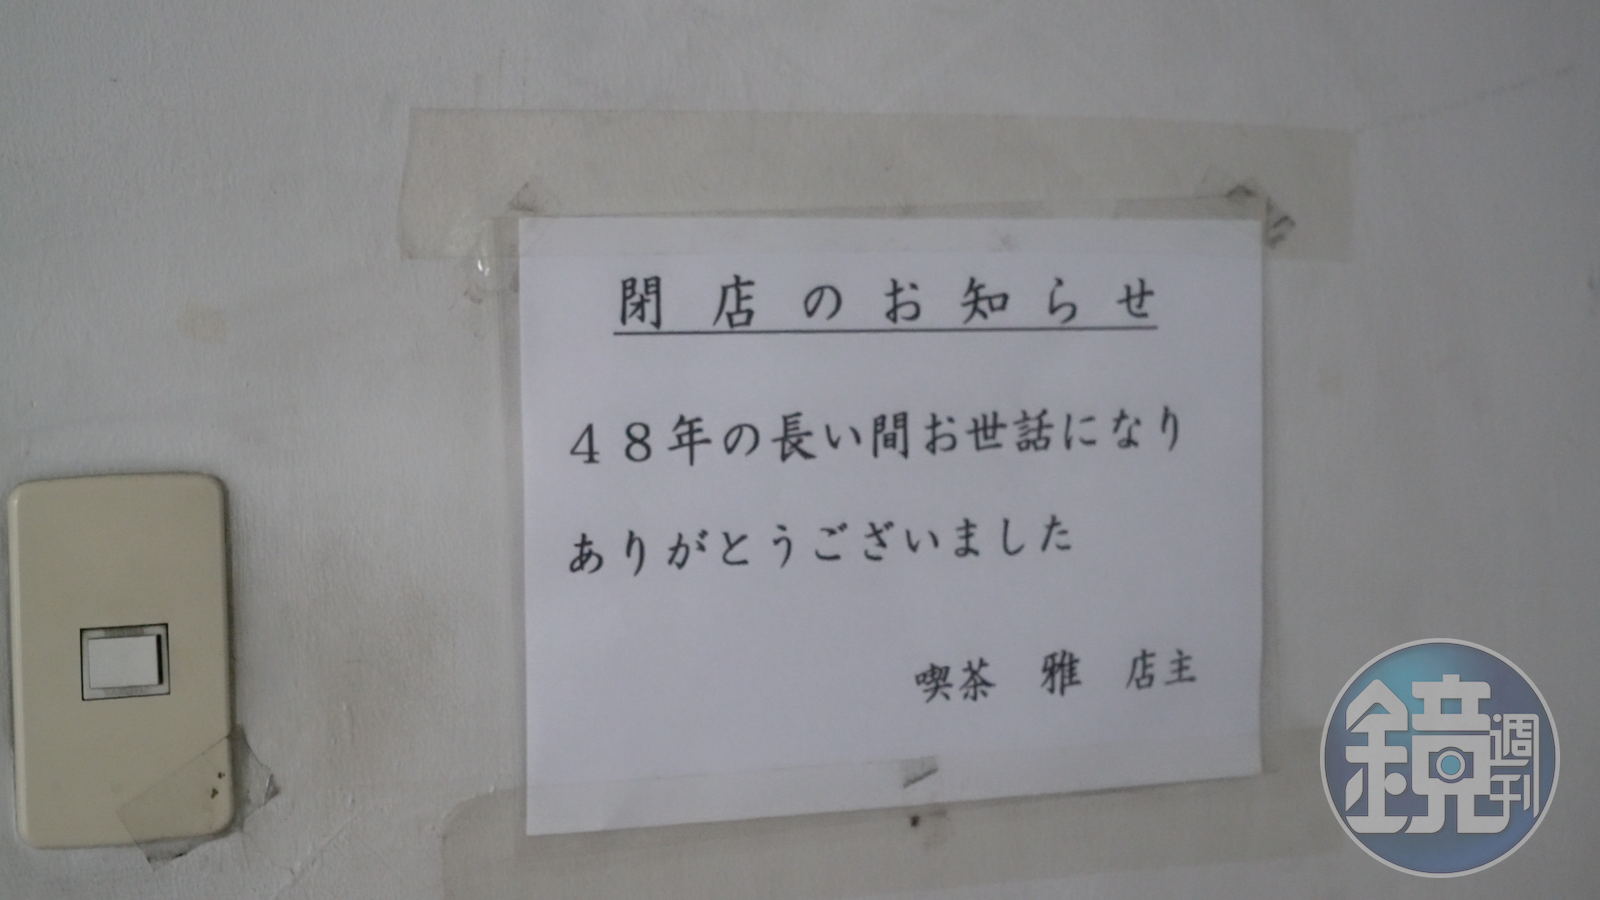 閉店のお知らせ
４８年の長い間お世話になり
ありがとうございました
喫茶　雅　店主
鏡週刊